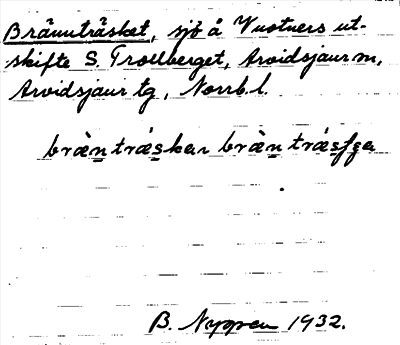 Brännträsket, sjö å Vuotners ut-
skifte S. Trollberget, Arvidsjaur sn,
Arvidsjaur tg, Norrb. l.
brä̀nträ́skar brä̀nträ́sʃɛa
B. Nygren 1932.